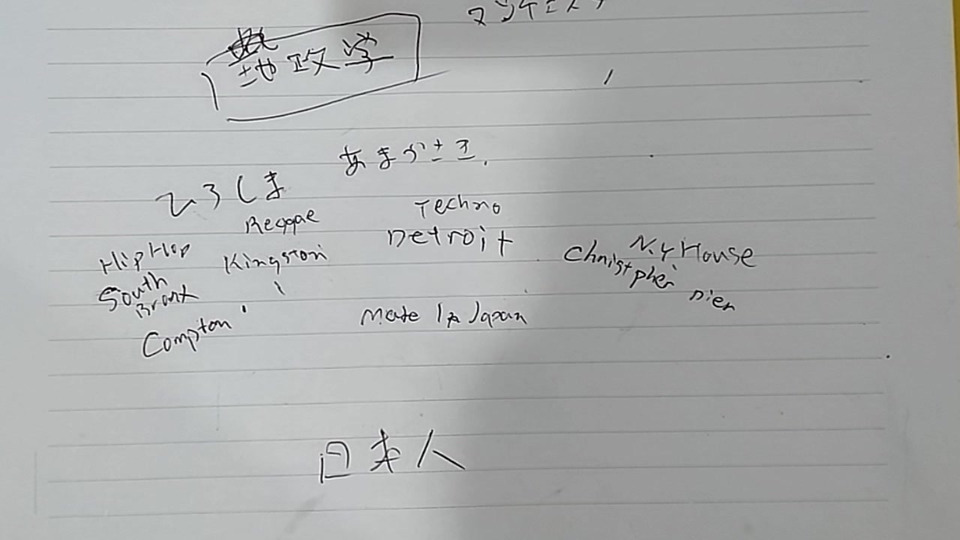 マンチェスタ
地政学
あまがさき.
ひろしま
Reggae
Techno
HipHop
Kingston
Detroit
N.Y House
South
Bronx
Christpher
Pier
Compton
Made In Japan
日本人